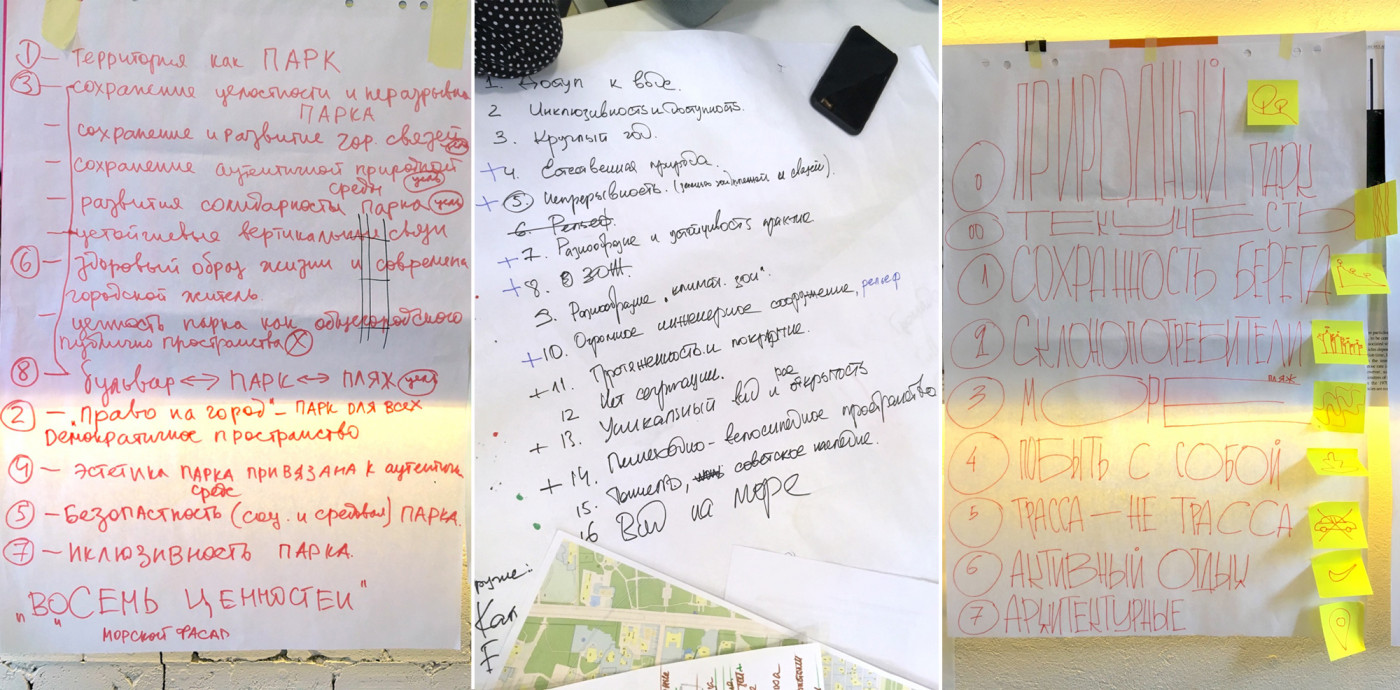 1 — Территория как ПАРК
3 — сохранение целостности и неразрывн
ПАРКА
— сохранение и развитие гор. связей цель
— сохранение аутентичной природной
среды цель
— развития солидарности парка цель
— устойчивые вертикальные связи
6 — здоровый образ жизни и современ
городской житель.
— ценность парка как общегородского
публично пространства X
8 — бульвар <—> ПАРК <—> ПЛЯЖ цель
2 — „Право на город" — ПАРК ДЛЯ ВСЕХ
Демократичное пространство
4 — Эстетика ПАРКА ПРИВЯЗАНА К аутентичн
среде
5 — Безопастность (соц. и средовая) ПАРКА.
7 — Иклюзивность ПАРКА.
"ВО"СЕМЬ ЦЕННОСТЕЙ"
МОРСКОЙ ФАСАД
1. Доступ к воде.
2 Инклюзивность и доступность.
3. Круглый год.
+ 4. Естественная природа.
+ 5. Непрерывность. ( и связей).
6. Рельеф.
+ 7. Разнообразие и устойчивость практик
+ 8. ЗОЖ.
9. Разнообразие „климат. зон".
+ 10. Огромное инженерное сооружение, рельеф
+ 11. Протяженность и покрытие.
12 Нет сегрегации.
+ 13. Уникальный вид и открытость
+ 14. Пешеходно-велосипедное пространство
15. советское наследие.
16 Вид на море
ПРИРОДНЫЙ
0 ПАРК
00 ТЕКУЧЕСТЬ
1 СОХРАННОСТЬ БЕРЕГА
2 СКЛОНОПОТРЕБИТЕЛИ
ПЛЯЖ
3 МОРЕ
4 ПОБЫТЬ С СОБОЙ
5 ТРАССА — НЕ ТРАССА
6 АКТИВНЫЙ ОТДЫХ
7 АРХИТЕКТУРНЫЕ